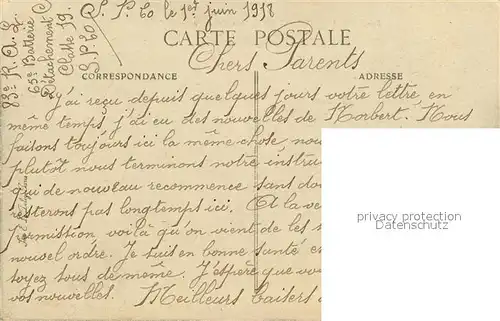 S. P. 60 le 1er juin 1918
88e R.A.L.
65e Batterie
Détachement C
Classe 19
S.P. 60
CARTE POSTALE
Chers Parents
CORRESPONDANCE
ADRESSE
J'ai reçu depuis quelques jours votre lettre, en
même temps j'ai eu des nouvelles de Norbert. Nous
faisons toujours ici la même chose, nou
plutôt nous terminons notre instru
qui de nouveau recommence sans dou
resterons pas longtemps ici. Et la
permission voilà qu'on vient de les s
nouvel ordre. Je suis en bonne santé
soyez tous de même. J'espère que
vos nouvelles. Meilleurs baisers
privacy protection
Datenschutz